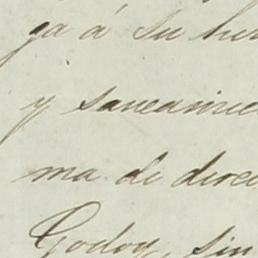 ga á su her
y saneamie
ma de direc
Godoy, sin